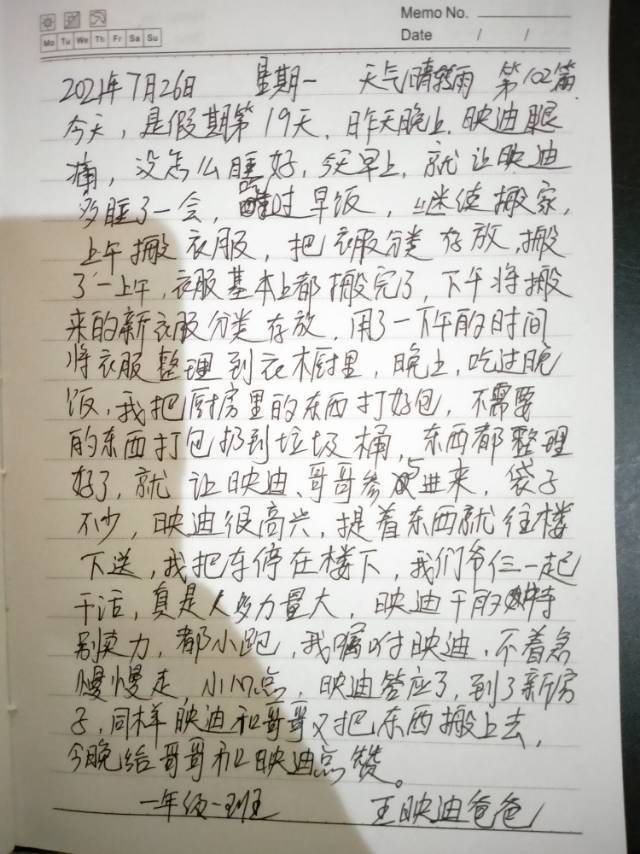 Memo No.
Mo Tu We Th Fr Sa Su
Date / /
2021年7月26日 星期一 天气晴转雨 第102篇
今天，是假期第19天，昨天晚上，映迪腿
痛，没怎么睡好，今天早上，就让映迪
多睡了一会，吃过早饭，继续搬家，
上午搬衣服，把衣服分类存放，搬
了一上午，衣服基本上都搬完了，下午将搬
来的新衣服分类存放，用了一下午的时间
将衣服整理到衣橱里，晚上，吃过晚
饭，我把厨房里的东西打好包，不需要
的东西打包扔到垃圾桶，东西都整理
好了，就让映迪、哥哥参与进来，袋子
不少，映迪很高兴，提着东西就往楼
下送，我把车停在楼下，我们爷仨一起
干活，真是人多力量大，映迪干的特
别卖力，都小跑，我嘱咐映迪，不着急
慢慢走，小心点，映迪答应了，到了新房
子，同样映迪和哥哥又把东西搬上去，
今晚给哥哥和映迪点赞。
一年级一班 王映迪爸爸